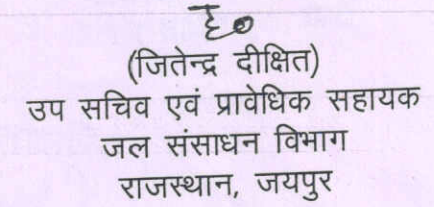 ह०
(जितेन्द्र दीक्षित)
उप सचिव एवं प्रावेधिक सहायक
जल संसाधन विभाग
राजस्थान, जयपुर